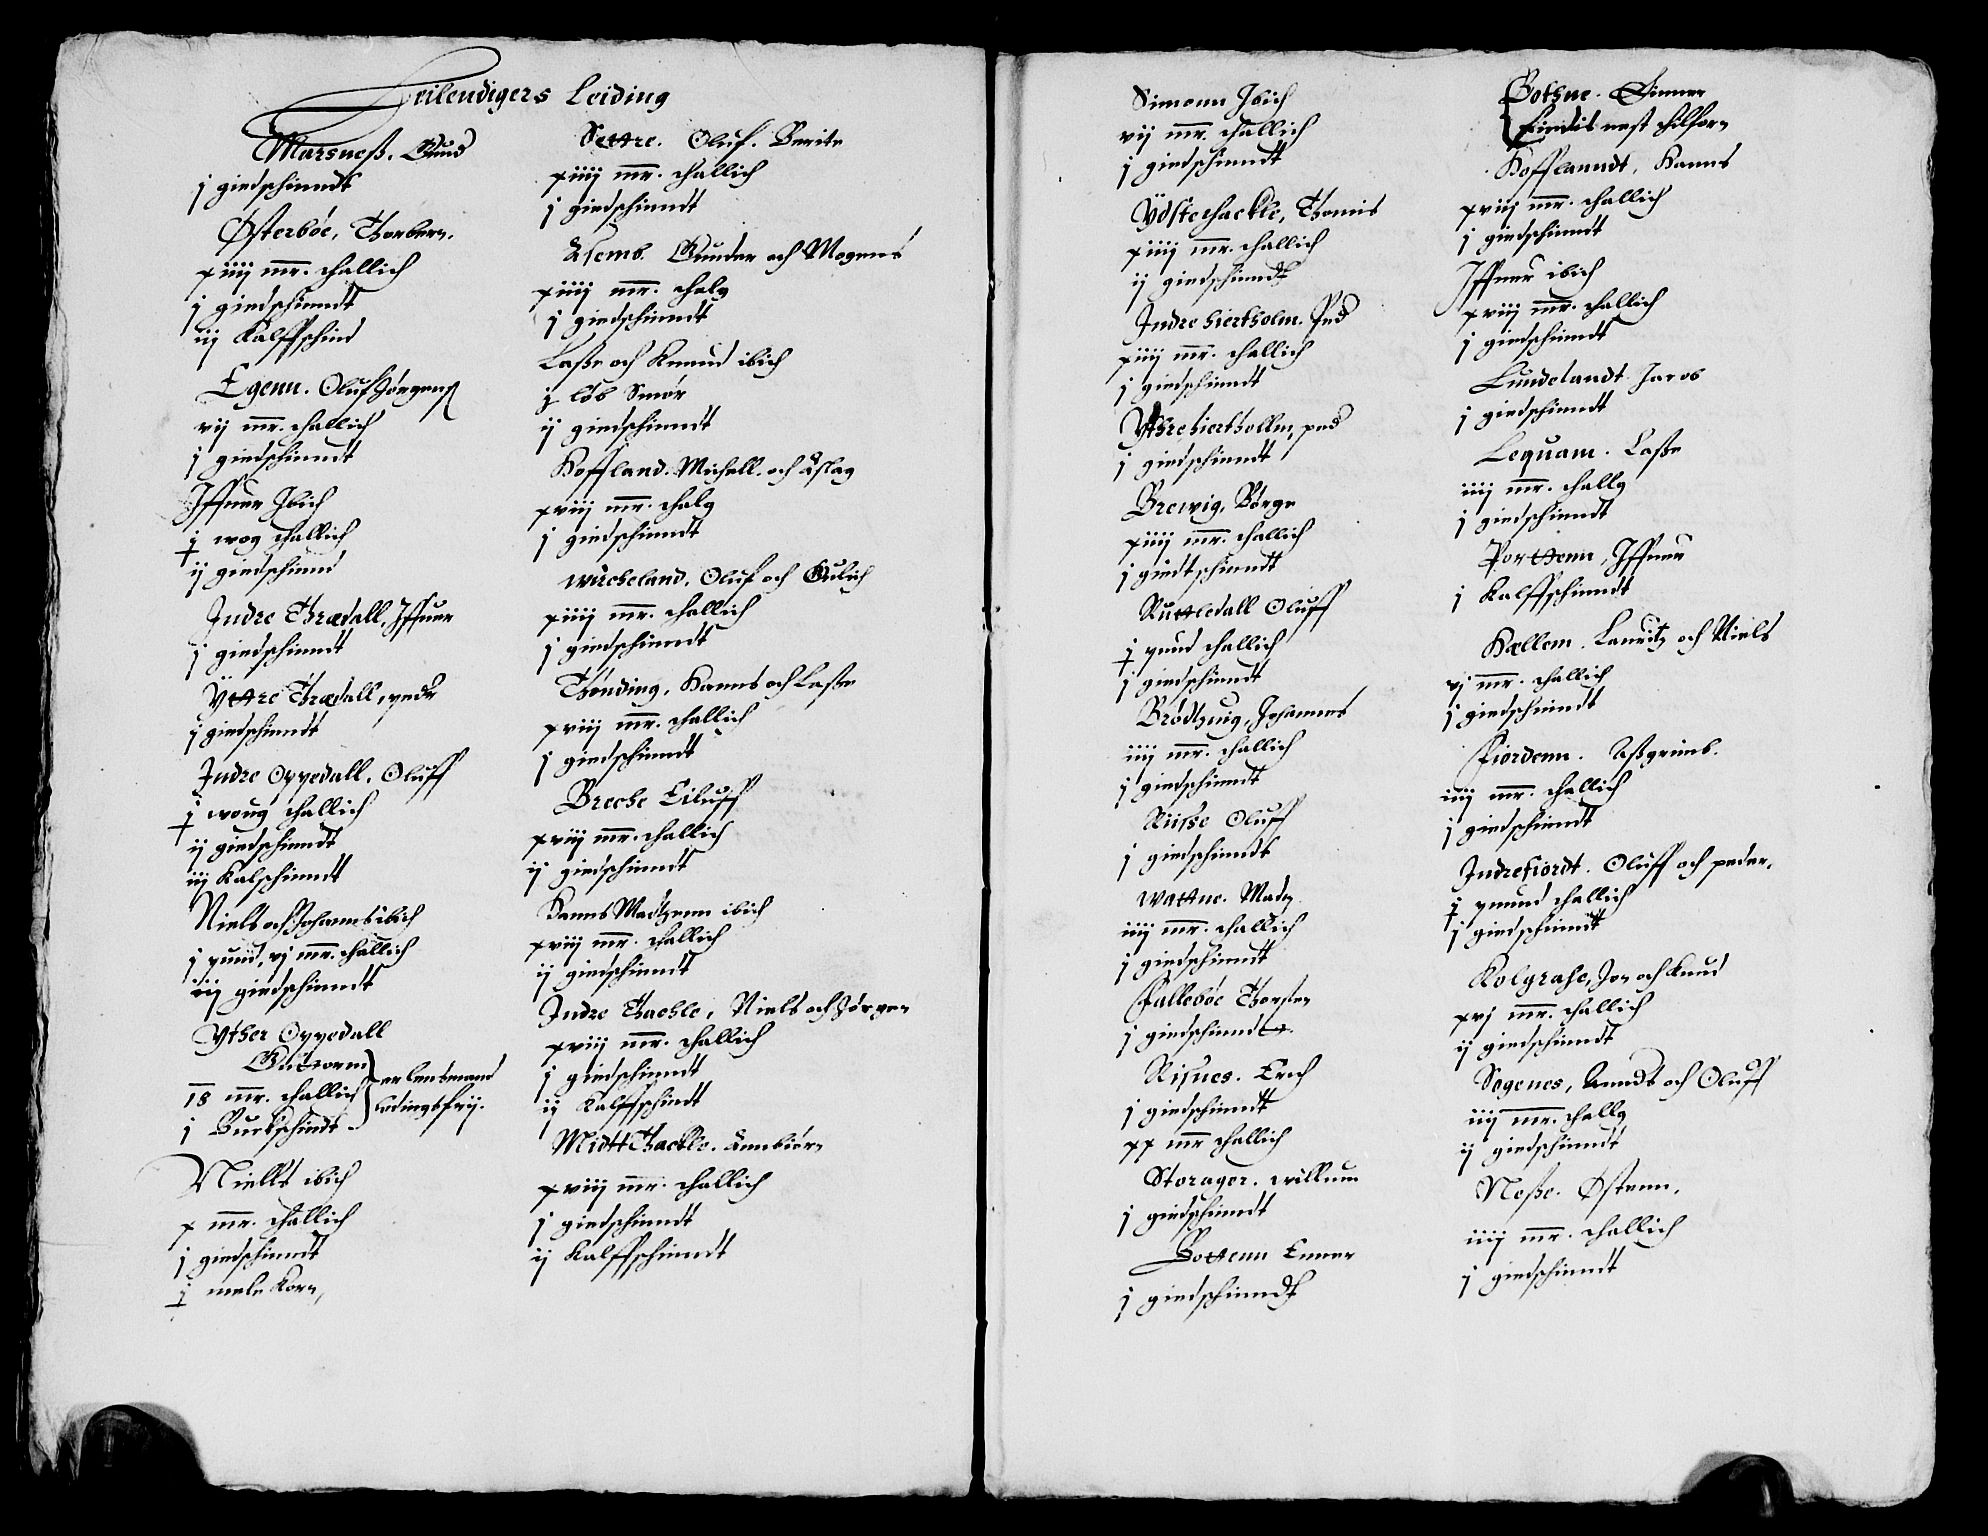 Heilendigers Leiding
Marsneß. Gund
j giedschinndt
Østerbóe, Thorbern.
xiiij mr. challich
j giedschinndt
iij Kalffschind
Egenn. Oluf Jórgenß
vij mr. challich
j giedschinndt
Iffuer Ibich
j wog challich
ij giedschinnd
Indre Thrædall, Iffuer
j giedschinndt
Yttre Thrædall, peder
j giedschinndt
Indre Oppedall. Oluff
j woug challich
ij giedschinndt
iij Kalschinndt
Niels och Johannes ibich
j pund, vj mr. challich
iij giedschinndt
Yther Oppedall
Guttorm
18 mr. challich
j Buckschindt
er lensmand
ledingsfrij.
Niells ibich
x mr. challich
j giedschinndt
j mele Korn,
Settre. Oluf. Berite
xiiij mr. challich
j giedschinndt
Asemb. Gunder och Mogens
xiiij mr. chalg
j giedschinndt
Laße och Knnud ibich
j lób Smór
ij giedschinndt
Hoffland. Michell. och Aslag
xviij mr. chalg
j giedschinndt
Wiicheland. Oluf och Gulich
xiiij mr. challich
j giedschinndt
Thónding, Hanns och Laße
xviij mr. challich
j giedschinndt
Breche Eiluff
xviij mr. challich
ij giedschinndt
Hanns Madtzenn ibich
xviij mr. challich
ij giedschinndt
Indre Thachle, Niels och Jórgen
xviij mr. challich
j giedschinndt
ij Kalffschindt
Midtt Thackle. Annbiórn
xviij mr. challich
j giedschinndt
ij Kalffschinndt
Simonn Ibich
vij mr. challich
j giedschinndt
Ydstethackle, Thomis
xiiij mr. challich
ij giedschinndt
Indre hiertholm. Ped
xiiij mr. challich
j giedschinndt
Ythre hiertholm, ped
j giedschinndt
Brewig, Bórge
xiiij mr. challich
j giedtschinndt
Ruttledall Oluff
j pund challich
j giedschinndt
Bródtzuig, Johannes
iiij mr. challich
j giedschinndt
Riisse Oluff
j giedschinndt
Wattne. Madz
iiij mr. challich
j giedschinndt
Fallebóe Thorsten
j giedschinndt
Risnes. Erich
j giedschinndt
xx mr challich
Storager. willum
j giedschinndt
Bottenn Enner
j giedschinndt
Bothne. Einner
Findis nest epilfor
Hofflanndt. Hanns
xviij mr. challich
j giedschinndt
Iffuer ibich
xviij mr. challich
j giedschinndt
Lundelandt Jacob
j giedschinndt
Lequam. Laße
iiij mr. challg
j giedschinndt
Porttenn, Iffuer
j Kalffschinndt
Hællem. Lauritz och Niels
vj mr. challich
j giedschinndt
Fiordenn. Aßgrimb.
iiij mr. challich
j giedschinndt
Indrefiordt. Oluff och peder.
j punnd challich
j giedschinndt
Kolgrafe, Jon och knud
xvj mr. challich
ij giedschinndt
Sogenes, Annds och Oluff
iiij mr. challg
ij giedschinndt
Neße. Østenn.
iiij mr. challich
j giedschinndt